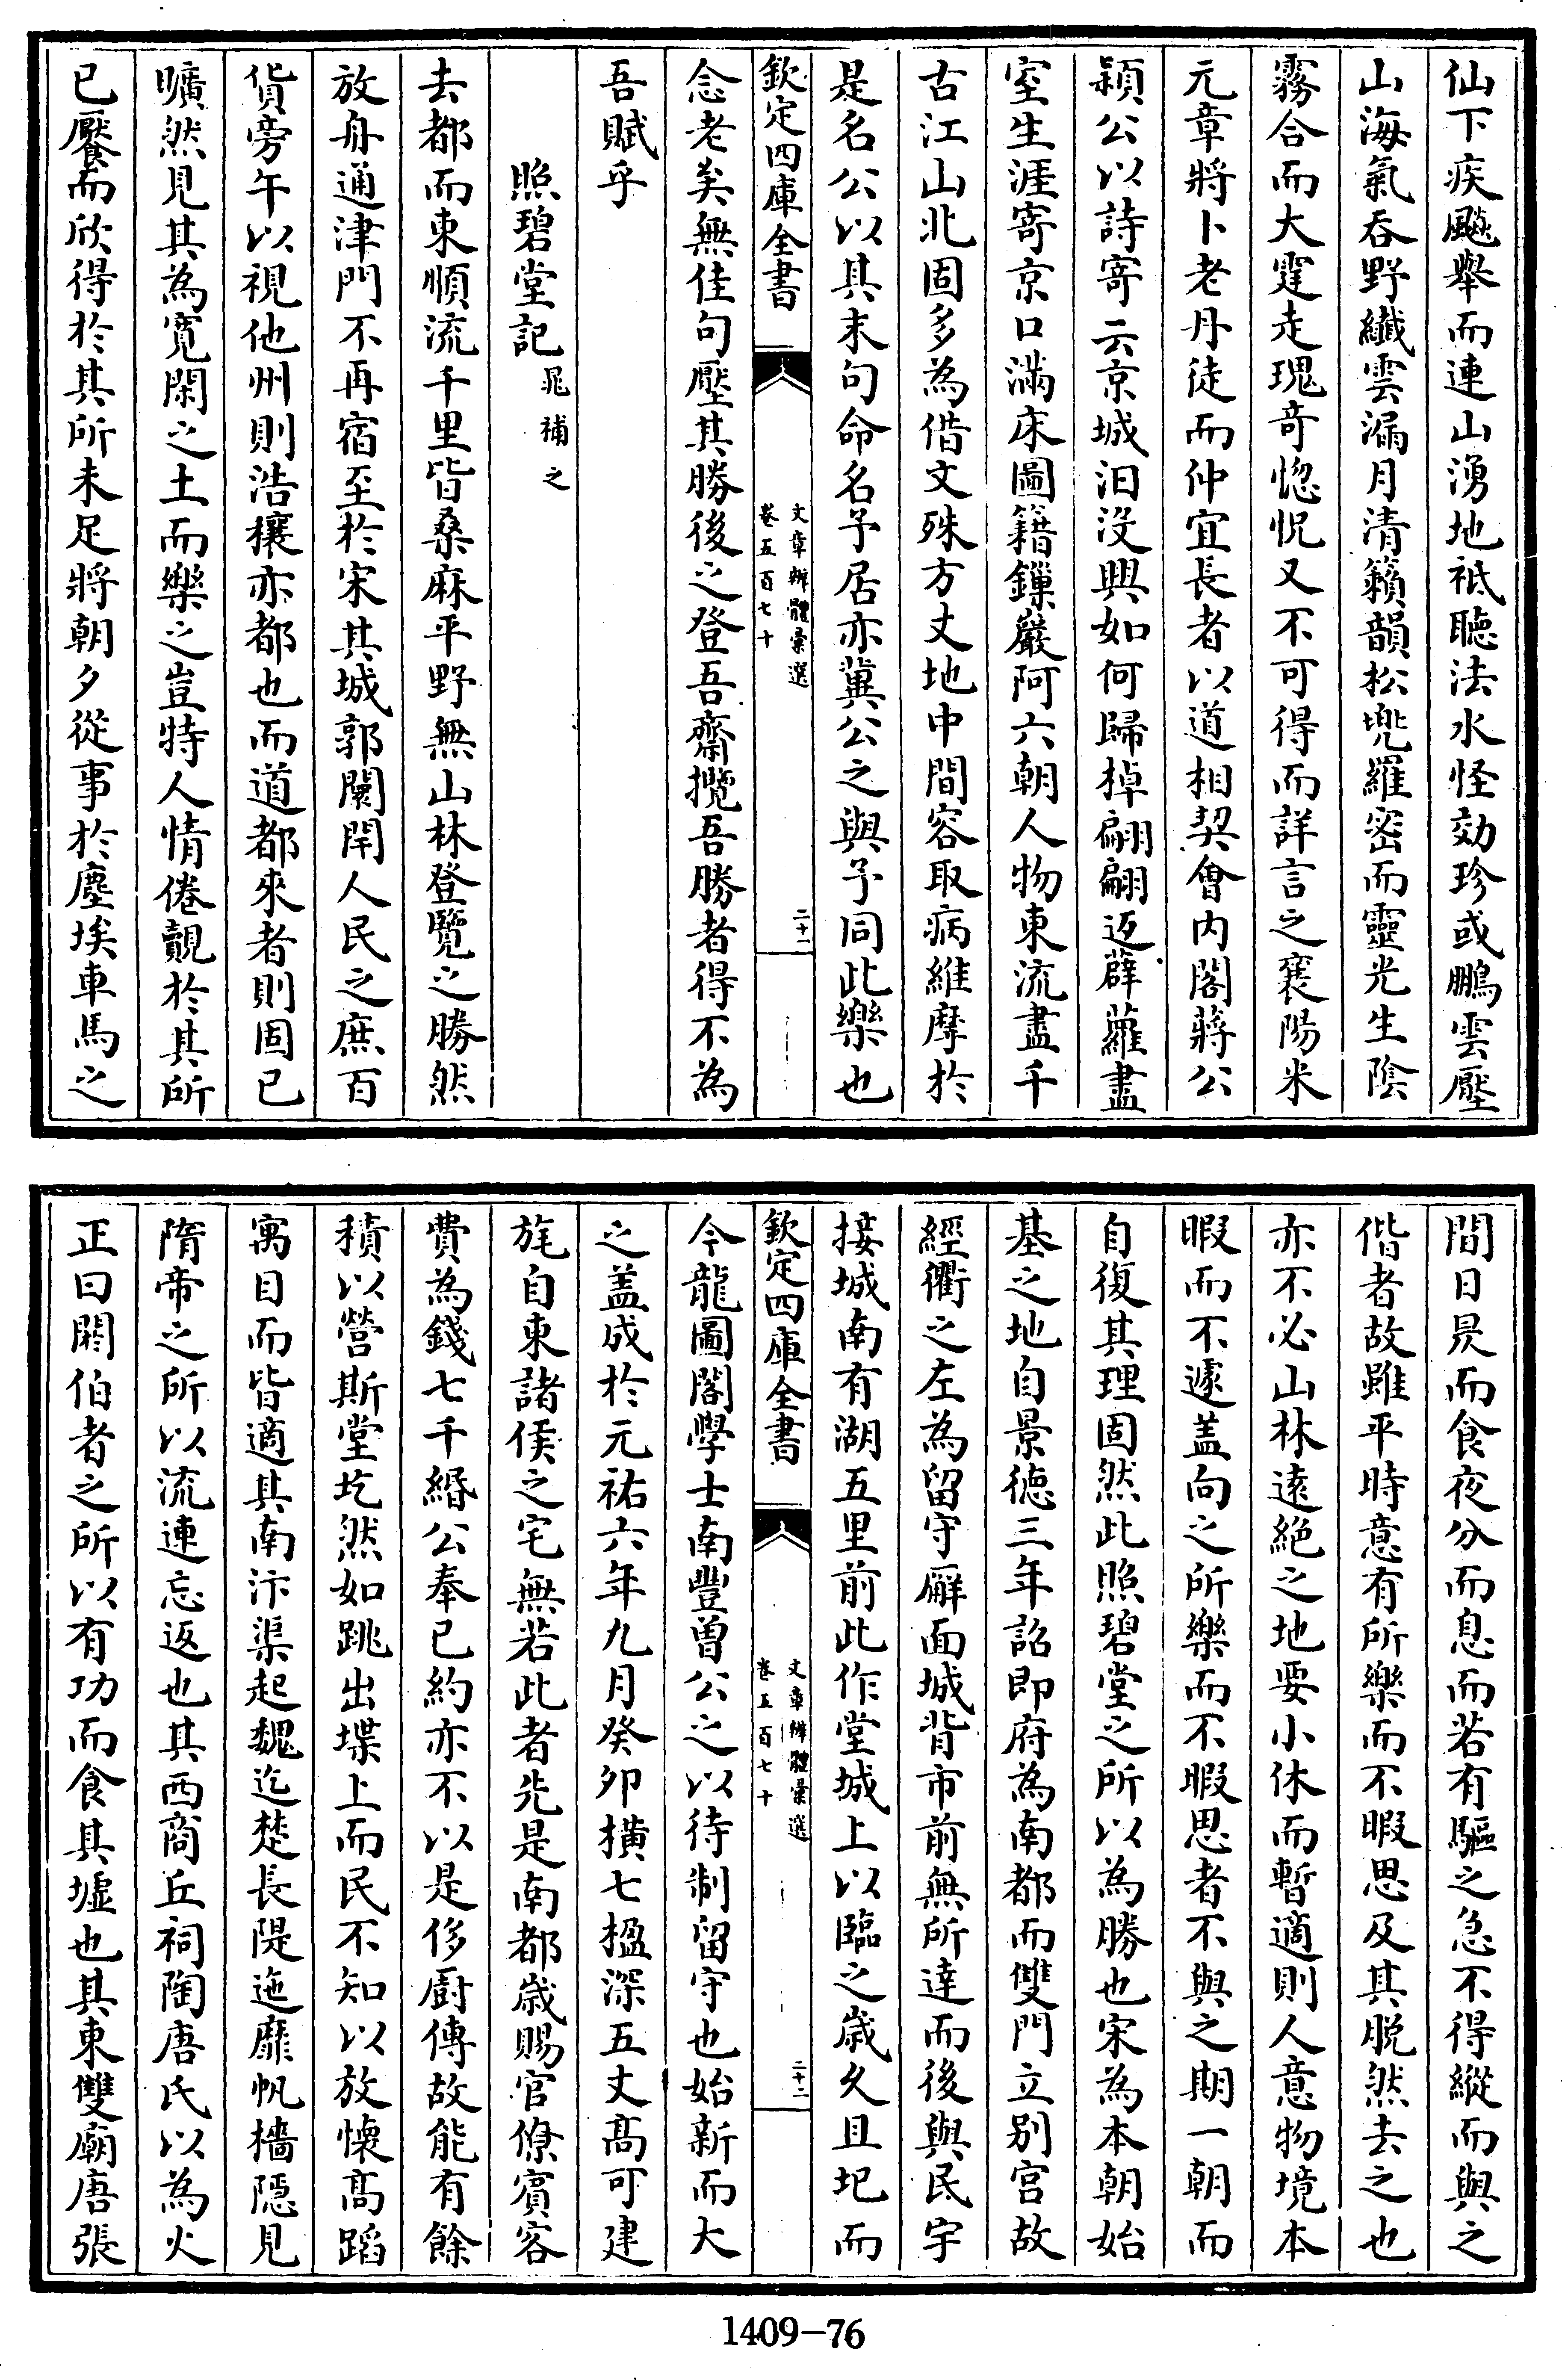 仙下疾飈舉而連山湧地祗聽法水怪効珍或鵬雲壓
山海氣吞野纖雲漏月清籟韻松兠羅密而靈光生陰
霧合而大霆走瑰竒惚怳又不可得而詳言之襄陽米
元章將卜老丹徒而仲宜長者以道相契會内閣蔣公
穎公以詩寄云京城汩没興如何歸棹翩翩返薜蘿盡
室生涯寄京口滿床圖籍鏁巖阿六朝人物東流盡千
古江山北固多為借文殊方丈地中間容取病維摩於
是名公以其末句命名予居亦冀公之與予同此樂也
欽定四庫全書
文章辨體彚選
卷五百七十
二十一
念老矣無佳句壓其勝後之登吾齋攬吾勝者得不為
吾賦乎
照碧堂記 晁補之
去都而東順流千里皆桑麻平野無山林登覽之勝然
放舟通津門不再宿至於宋其城郭闤閈人民之庶百
貨旁午以視他州則浩穰亦都也而道都來者則固已
曠然見其為寛閑之土而樂之豈特人情倦覿於其所
已饜而欣得於其所未足將朝夕從事於塵埃車馬之
間日昃而食夜分而息而若有驅之急不得縱而與之
偕者故雖平時意有所樂而不暇思及其脱然去之也
亦不必山林逺絶之地要小休而暫適則人意物境本
暇而不遽盖向之所樂而不暇思者不與之期一朝而
自復其理固然此照碧堂之所以為勝也宋為本朝始
基之地自景德三年詔即府為南都而雙門立别宫故
經衢之左為留守廨面城背市前無所達而後與民宇
接城南有湖五里前此作堂城上以臨之嵗久且圮而
欽定四庫全書
文章辨體彚選
卷五百七十
二十二
今龍圖閣學士南豐曽公之以待制留守也始新而大
之盖成於元祐六年九月癸夘横七楹深五丈髙可建
旄自東諸侯之宅無若此者先是南都嵗賜官僚賓客
費為錢七千緡公奉已約亦不以是侈厨傳故能有餘
積以營斯堂圪然如跳出堞上而民不知以放懷髙蹈
寓目而皆適其南汴渠起魏迄楚長隄迤靡帆檣隠見
隋帝之所以流連忘返也其西商丘祠陶唐氏以為火
正曰閼伯者之所以有功而食其墟也其東雙廟唐張
1409—76